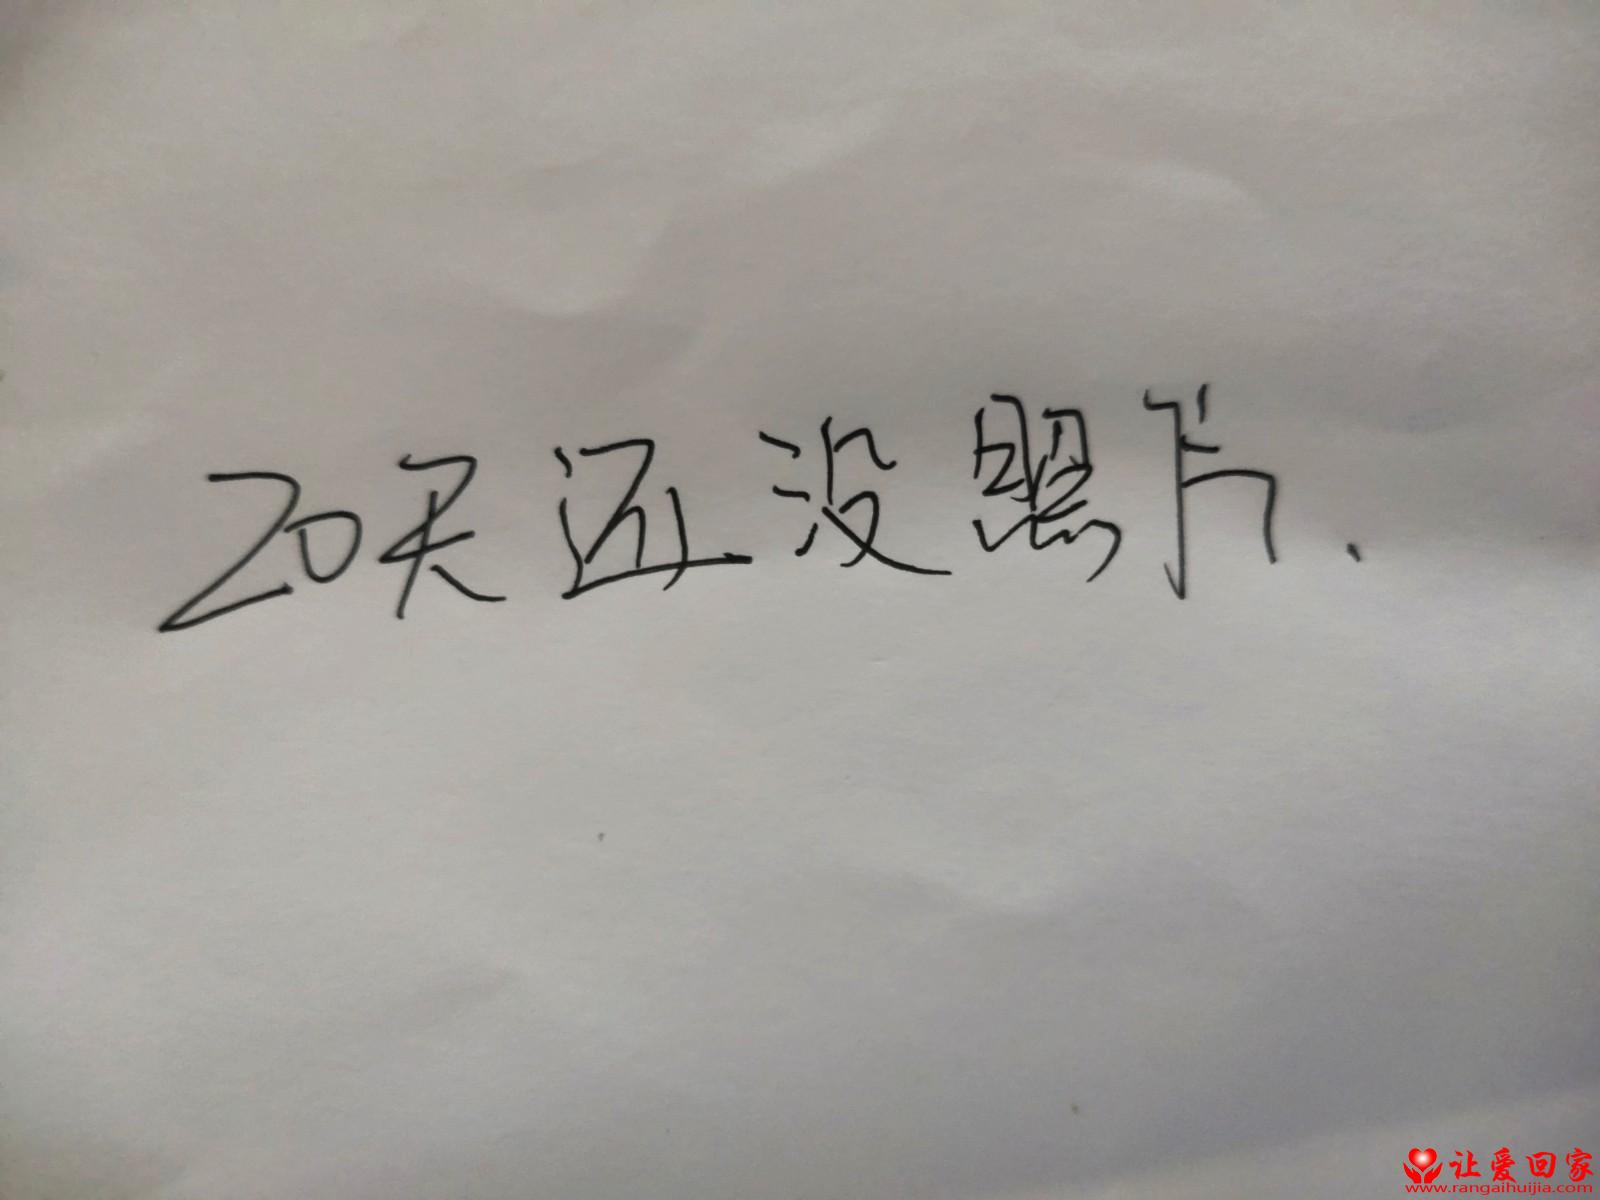 20天还没照片.
让爱回家
www.rangaihuijia.com